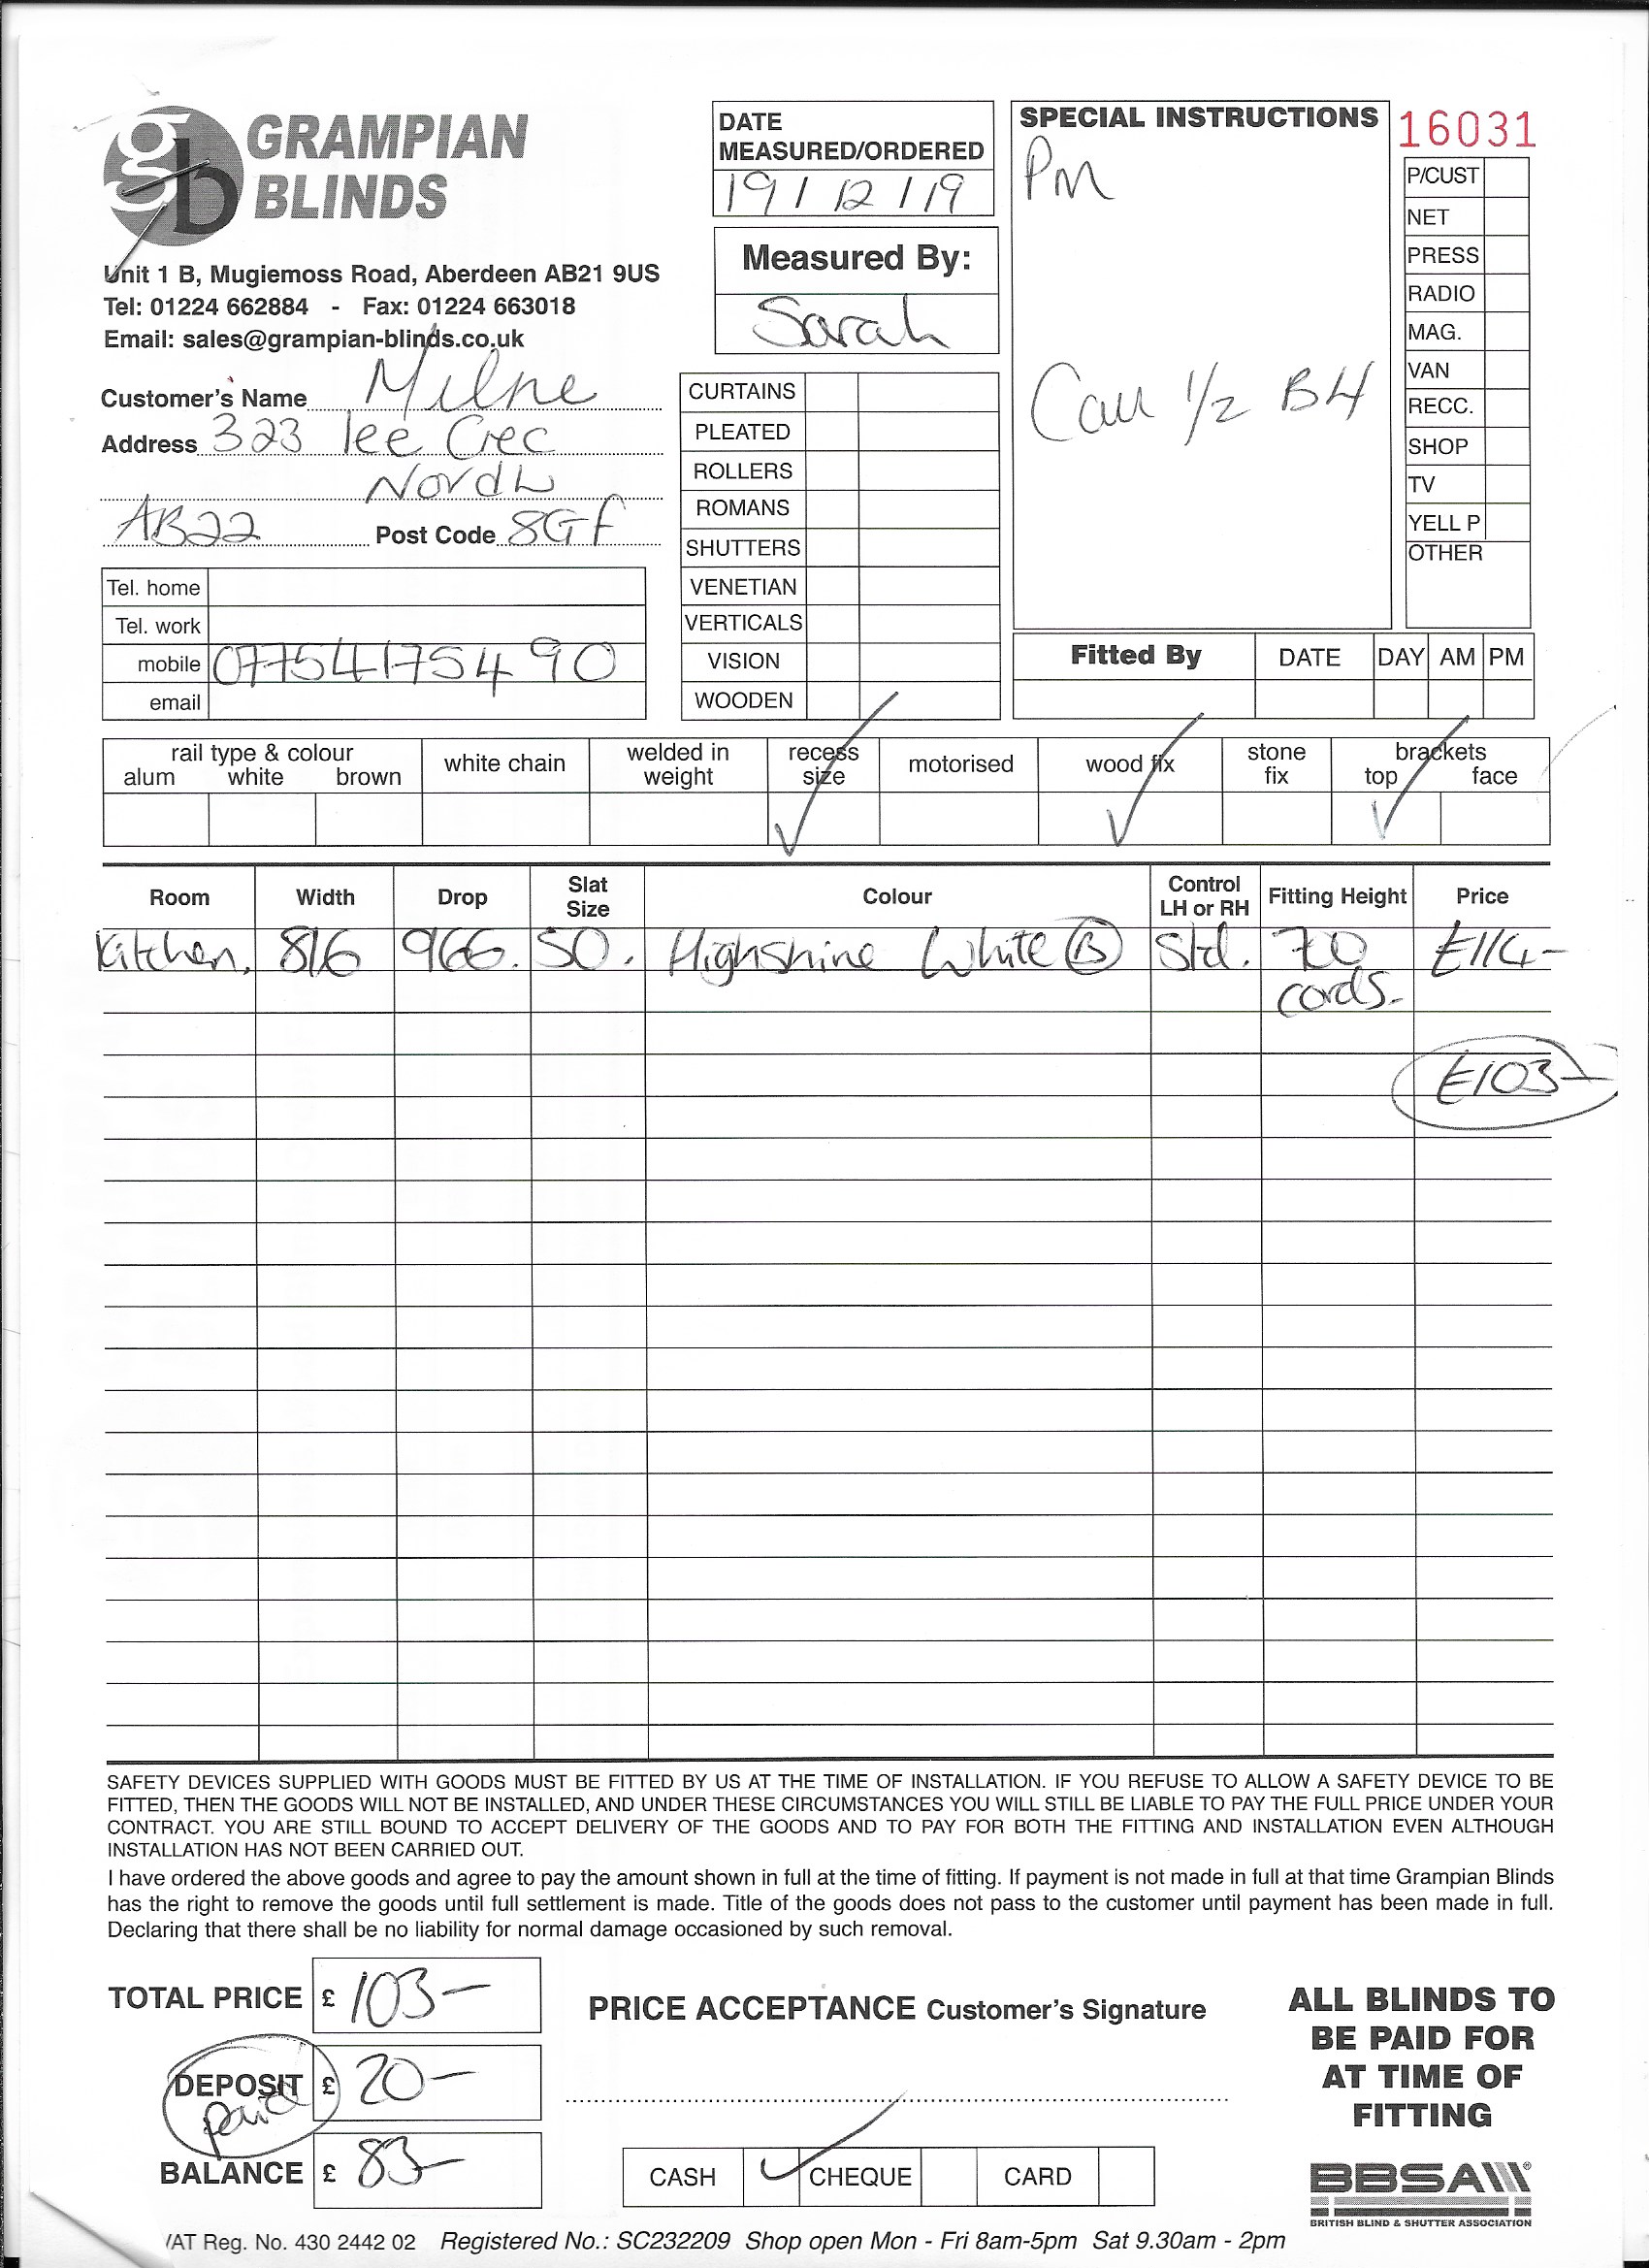 gb GRAMPIAN
BLINDS
Unit 1 B, Mugiemoss Road, Aberdeen AB21 9US
Tel: 01224 662884 - Fax: 01224 663018
Email: sales@grampian-blinds.co.uk
Customer's Name Milne
Address 323 lee Crec
Nordh
AB22 Post Code 8GF
Tel. home
Tel. work
mobile 07754175490
email
DATE
MEASURED/ORDERED
19/12/19
Measured By:
Sarah
CURTAINS
PLEATED
ROLLERS
ROMANS
SHUTTERS
VENETIAN
VERTICALS
VISION
WOODEN
SPECIAL INSTRUCTIONS
Pm
Call 1/2 B4
16031
P/CUST
NET
PRESS
RADIO
MAG.
VAN
RECC.
SHOP
TV
YELL P
OTHER
Fitted By DATE DAY AM PM
rail type & colour white chain welded in weight recess size motorised wood fix stone fix brackets
alum white brown top face
Room Width Drop Slat Size Colour Control LH or RH Fitting Height Price
Kitchen. 816 966. 50. Highshine White B Std. 70 £114-
cords.
£103-
SAFETY DEVICES SUPPLIED WITH GOODS MUST BE FITTED BY US AT THE TIME OF INSTALLATION. IF YOU REFUSE TO ALLOW A SAFETY DEVICE TO BE
FITTED, THEN THE GOODS WILL NOT BE INSTALLED, AND UNDER THESE CIRCUMSTANCES YOU WILL STILL BE LIABLE TO PAY THE FULL PRICE UNDER YOUR
CONTRACT. YOU ARE STILL BOUND TO ACCEPT DELIVERY OF THE GOODS AND TO PAY FOR BOTH THE FITTING AND INSTALLATION EVEN ALTHOUGH
INSTALLATION HAS NOT BEEN CARRIED OUT.
I have ordered the above goods and agree to pay the amount shown in full at the time of fitting. If payment is not made in full at that time Grampian Blinds
has the right to remove the goods until full settlement is made. Title of the goods does not pass to the customer until payment has been made in full.
Declaring that there shall be no liability for normal damage occasioned by such removal.
TOTAL PRICE £ 103-
DEPOSIT £ 20-
paid
BALANCE £ 83-
PRICE ACCEPTANCE Customer's Signature
CASH CHEQUE CARD
ALL BLINDS TO
BE PAID FOR
AT TIME OF
FITTING
BBSA
BRITISH BLIND & SHUTTER ASSOCIATION
VAT Reg. No. 430 2442 02 Registered No.: SC232209 Shop open Mon - Fri 8am-5pm Sat 9.30am - 2pm